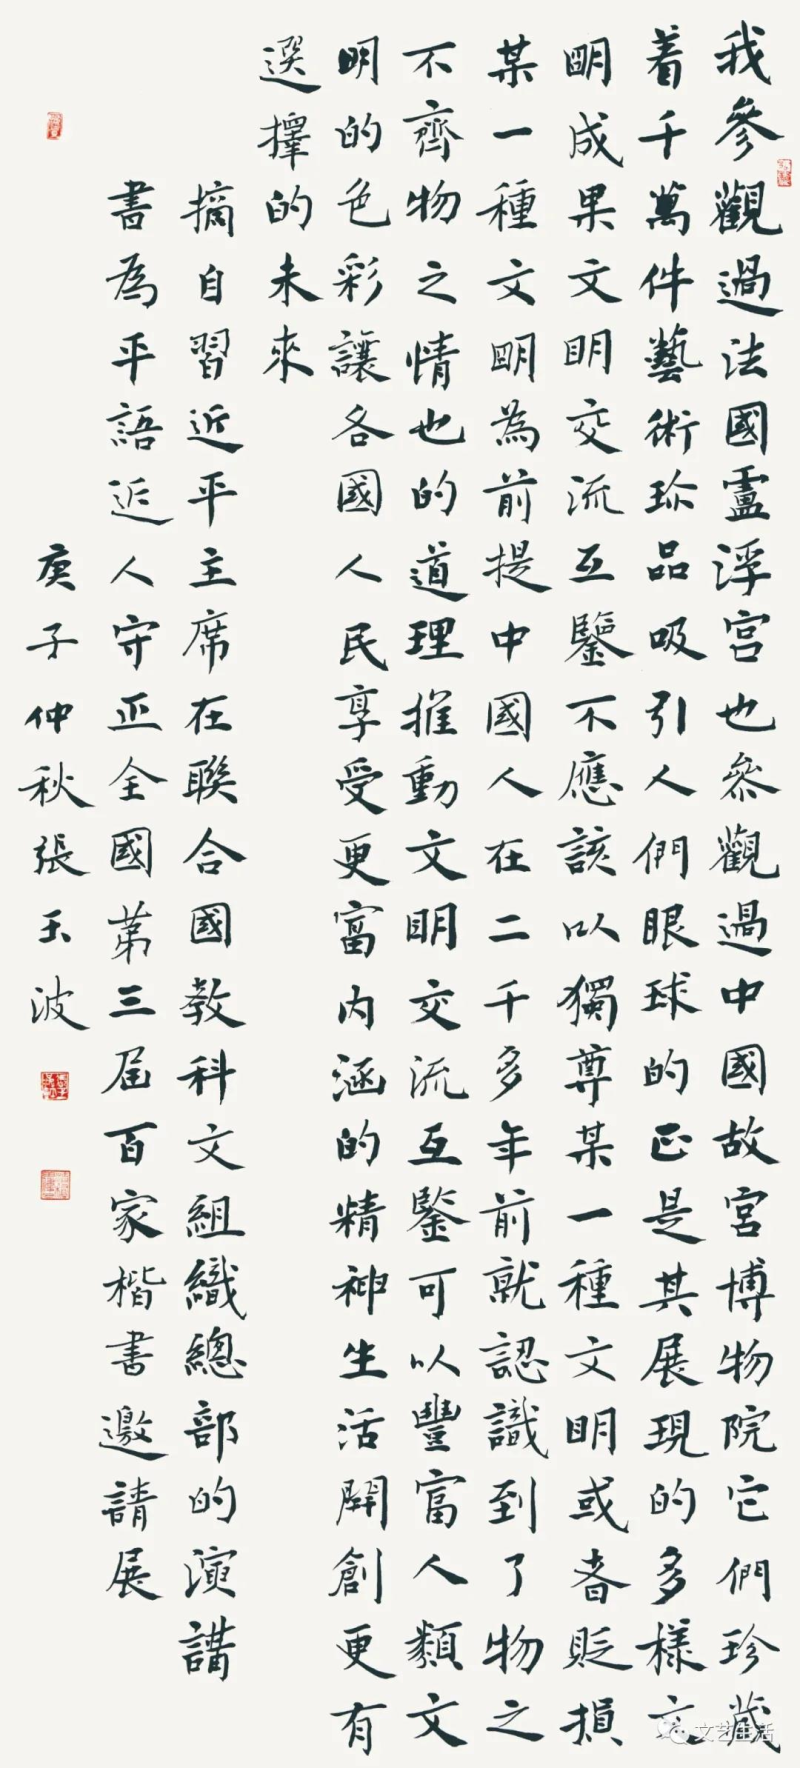 我參觀過法國盧浮宮也參觀過中國故宮博物院它們珍藏
着千萬件藝術珍品吸引人們眼球的正是其展現的多樣文
明成果文明交流互鑒不應該以獨尊某一種文明或者貶損
某一種文明為前提中國人在二千多年前就認識到了物之
不齊物之情也的道理推動文明交流互鑒可以豐富人類文
明的色彩讓各國人民享受更富內涵的精神生活開創更有
選擇的未來
摘自習近平主席在聯合國教科文組織總部的演講
書為平語近人守正全國第三屆百家楷書邀請展
庚子仲秋張玉波
文艺生活